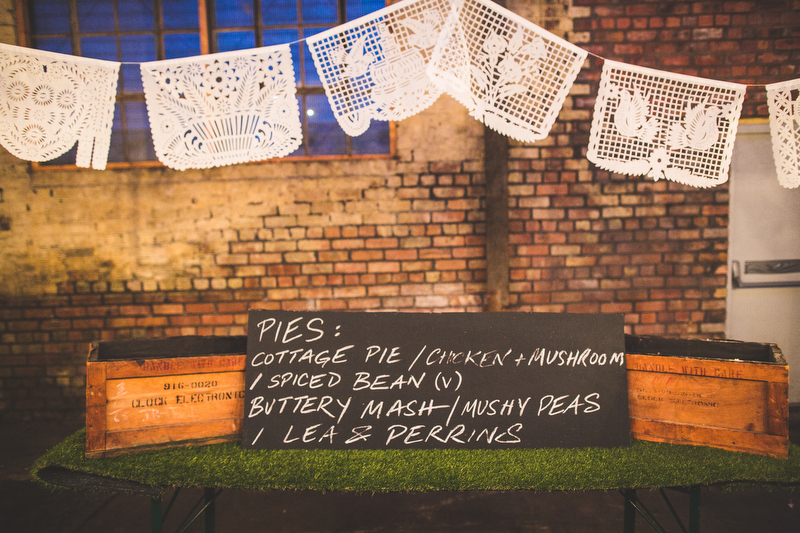 PIES:
COTTAGE PIE / CHICKEN + MUSHROOM
/ SPICED BEAN (V)
BUTTERY MASH / MUSHY PEAS
/ LEA & PERRINS
916-0020
CLOCK ELECTRONIC
HANDLE WITH CARE
CLOCK ELECTRONIC